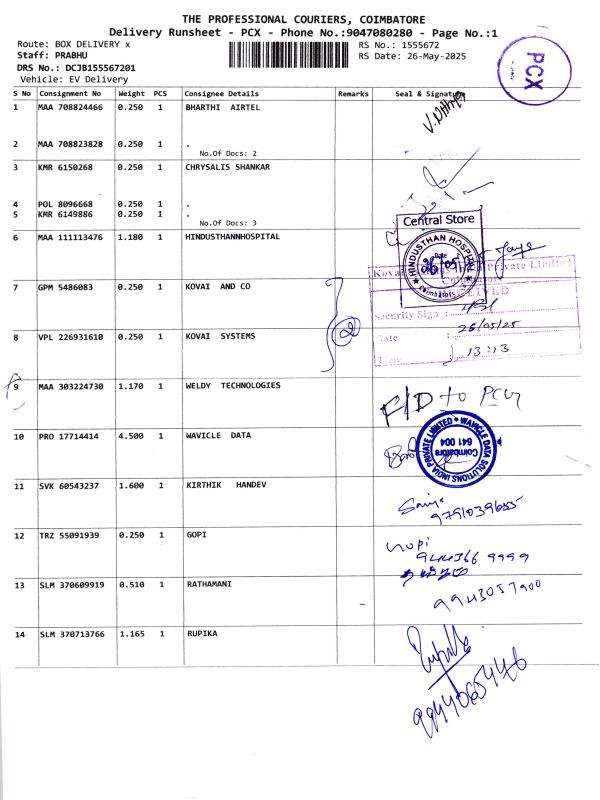 THE PROFESSIONAL COURIERS, COIMBATORE
Delivery Runsheet - PCX - Phone No.:9047080280 - Page No.:1
Route: BOX DELIVERY x
RS No.: 1555672
Staff: PRABHU
RS Date: 26-May-2025
DRS No.: DCJB155567201
Vehicle: EV Delivery
PCX
S No Consignment No Weight PCS Consignee Details Remarks Seal & Signature
1 MAA 708824466 0.250 1 BHARTHI AIRTEL
2 MAA 708823828 0.250 1 .
No.Of Docs: 2
3 KMR 6150268 0.250 1 CHRYSALIS SHANKAR
4 POL 8096668 0.250 1 .
5 KMR 6149886 0.250 1 .
No.Of Docs: 3
Central Store
6 MAA 111113476 1.180 1 HINDUSTHANNHOSPITAL
HINDUSTHAN HOSPITAL
Date
Coimbatore
Kovai Private Limited
7 GPM 5486083 0.250 1 KOVAI AND CO
Security Sign :
26/05/25
8 VPL 226931610 0.250 1 KOVAI SYSTEMS
Date :
Time : 13:13
9 MAA 303224730 1.170 1 WELDY TECHNOLOGIES
F/D to
10 PRO 17714414 4.500 1 WAVICLE DATA
WAVICLE DATA SOLUTIONS INDIA PRIVATE LIMITED
Coimbatore
641 004
11 SVK 60543237 1.600 1 KIRTHIK HANDEV
12 TRZ 55091939 0.250 1 GOPI
Gopi
13 SLM 370609919 0.510 1 RATHAMANI
9943057900
14 SLM 370713766 1.165 1 RUPIKA